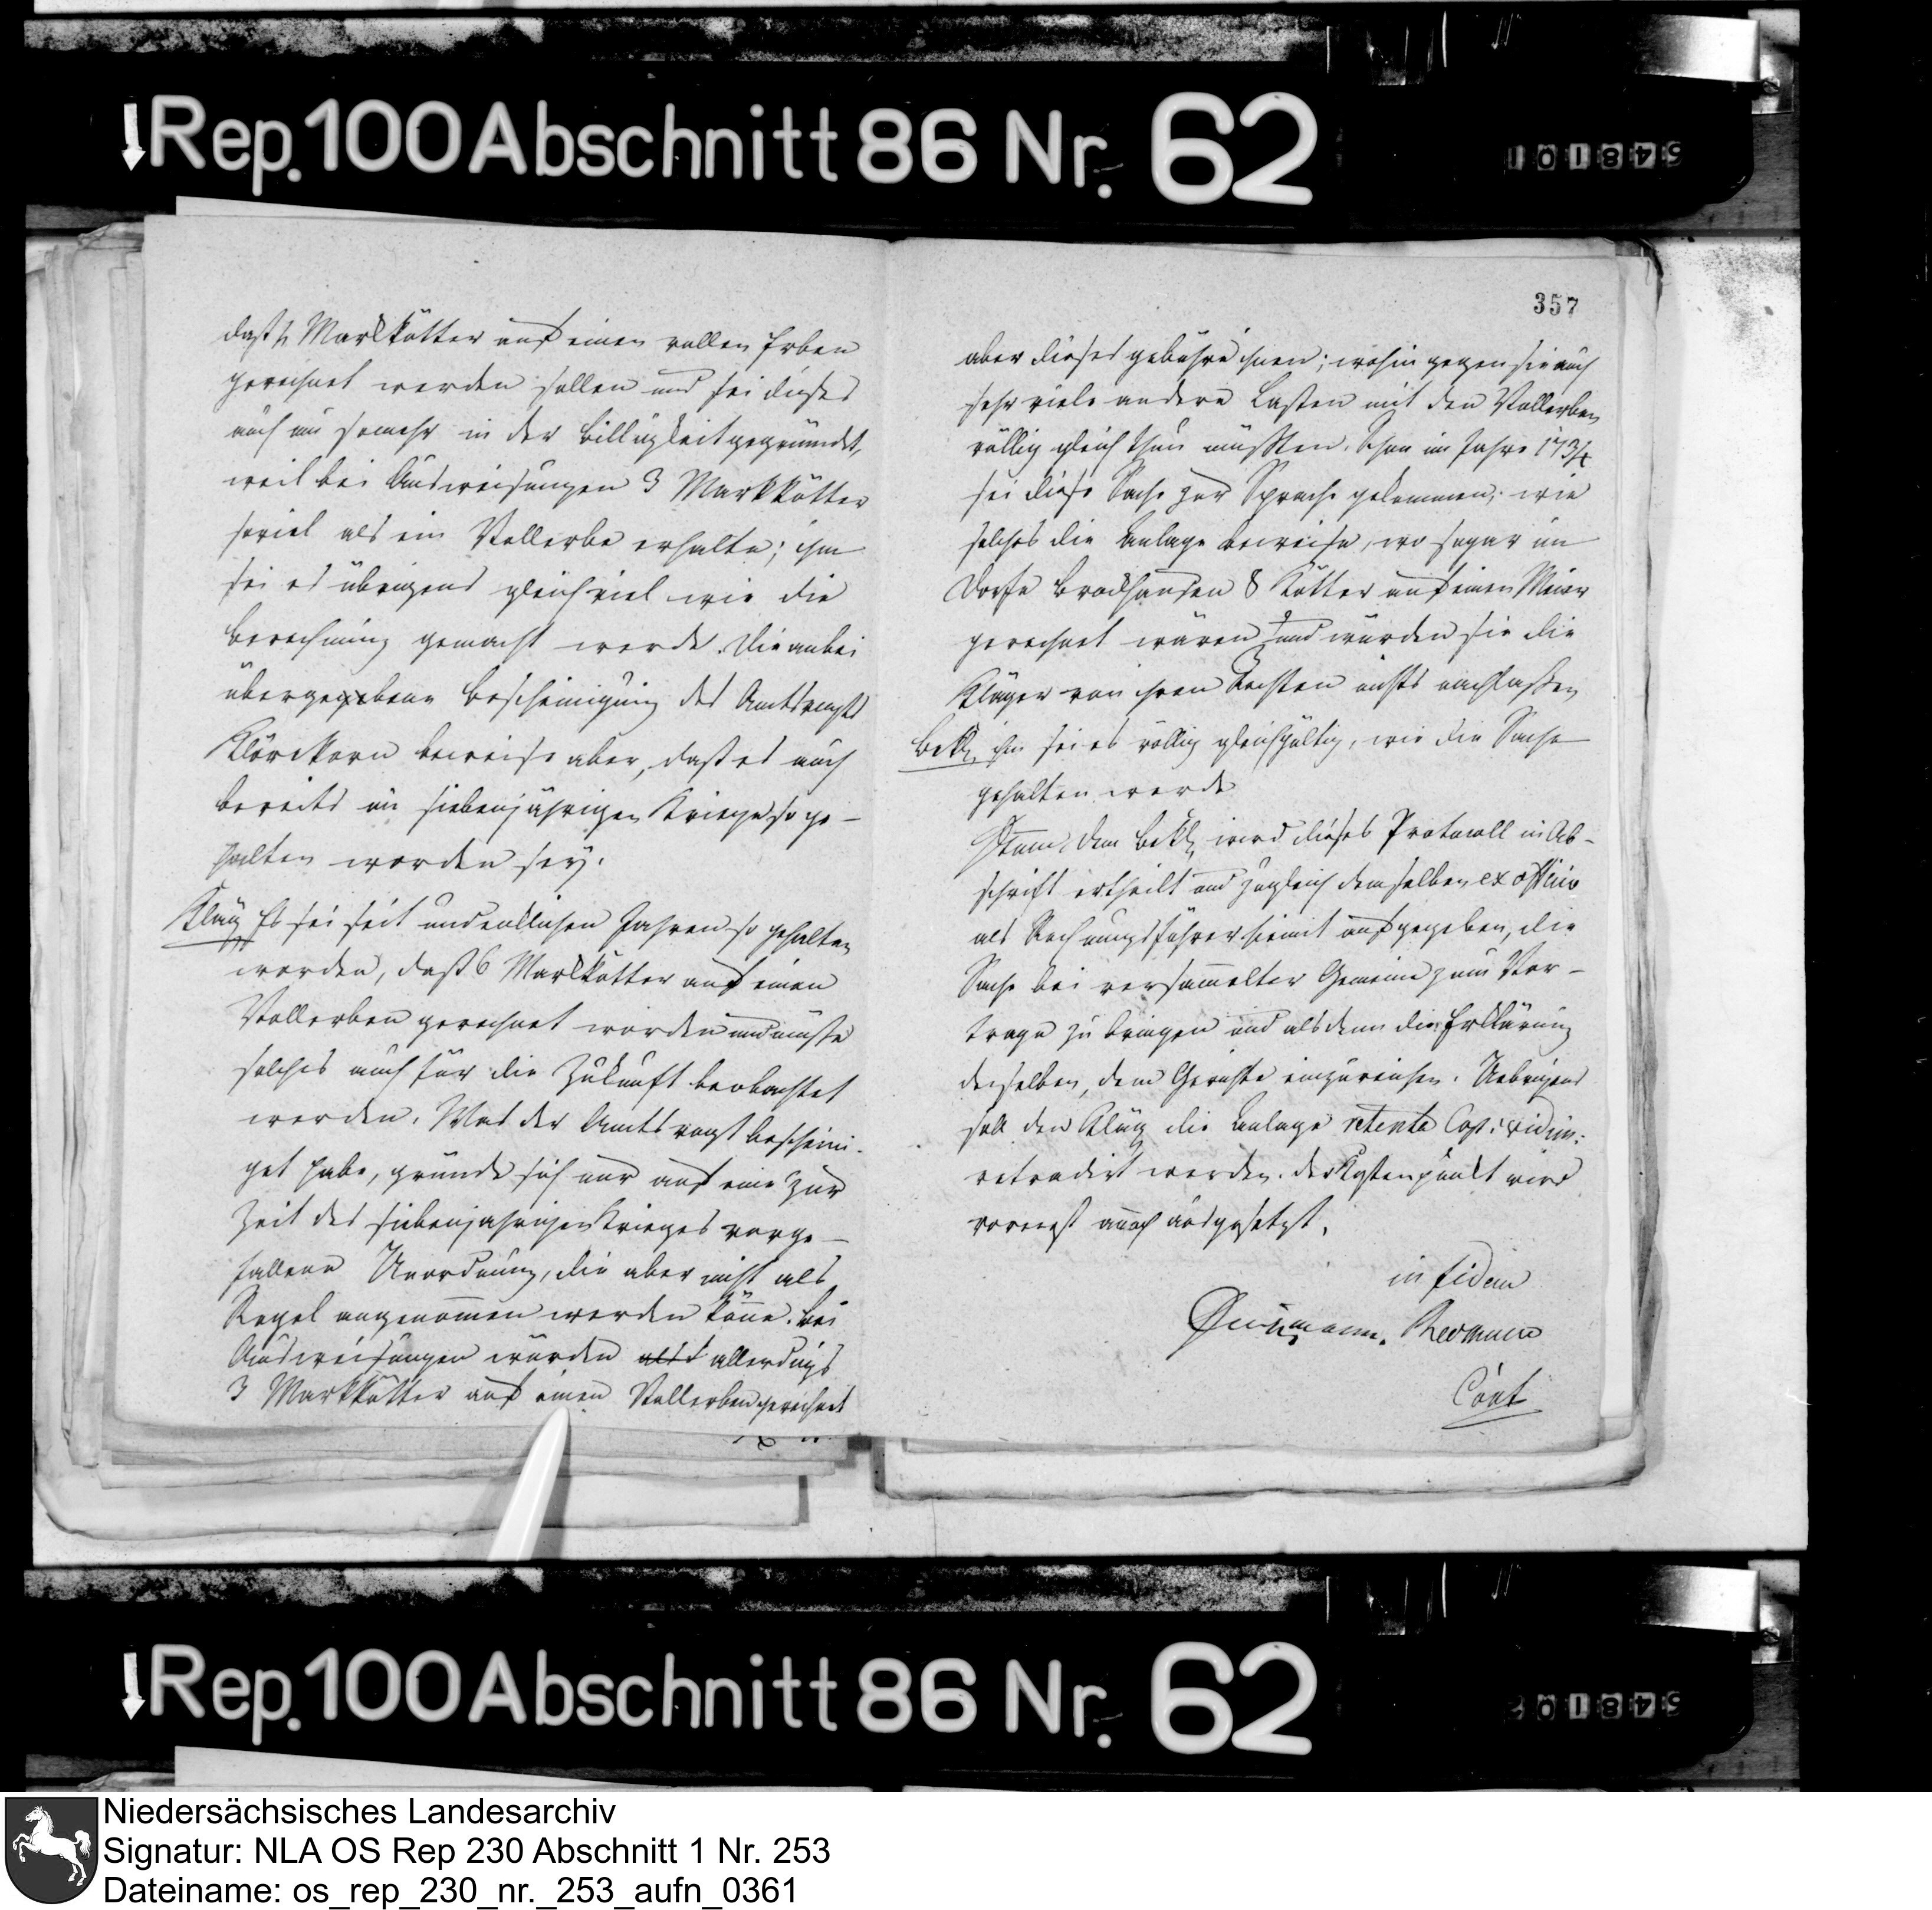 Rep. 100 Abschnitt 86 Nr. 62
101845
daß 4 Markkötter auf einen vollen Erben
gerechnet werden sollen und sei dieses
auch um somehr in der Billigkeit gegründet,
weil bei Ausweisungen 3 Markkötter
soviel als ein Vollerbe erhalte; ihm
sei es übrigens gleichviel wie die
Berechnung gemacht werde. Die anbei
übergebene Bescheinigung des Amtsvogts
beweise aber, daß es auch
bereits im siebenjährigen Kriege so ge-
halten worden sey.
Kläg. Es sei seit undenklichen Jahren so gehalten
worden, daß 6 Markkötter auf einen
Vollerben gerechnet worden und müsse
solches auch für die Zukunft beobachtet
werden. Was der Amtsvogt bescheini-
get habe, gründe sich nur auf eine zur
Zeit des siebenjährigen Krieges vorge-
fallene Unordnung, die aber nicht als
Regel angenommen werden könne. Bei
Ausweisungen würden allerdings
3 Markkötter auf einen Vollerben gerechnet
357
aber dieses gebühre ihnen; wohingegen sie auch
sehr viele andere Lasten mit den Vollerben
völlig gleich thun müßten. Schon im Jahre
sei diese Sache zur Sprache gekommen, wie
solches die Anlage beweise, wo sogar im
Dorfe Brockhausen 8 Kötter auf einen Meier
gerechnet wären und würden sie die
Kläger von ihren Rechten nichts nachlassen
Bekl. ihm sei es völlig gleichgültig, wie die Sache
gehalten werde
Dem Bekl. wird dieses Protocoll in Ab-
schrift ertheilt und zugleich demselben ex officio
als Rechnungsführer hiemit aufgegeben, die
Sache bei versammelter Gemeine zum Vor-
trage zu bringen und alsdenn die Erklärung
derselben, dem Gerichte einzureichen. Uebrigens
soll den Kläg. die Anlage retenta Cop: vidim:
retradirt werden. Der Kostenpunkt wird
vorerst annoch ausgesetzt.
in fidem
Rep. 100 Abschnitt 86 Nr. 62
101845
Niedersächsisches Landesarchiv
Signatur: NLA OS Rep 230 Abschnitt 1 Nr. 253
Dateiname: os_rep_230_nr._253_aufn_0361